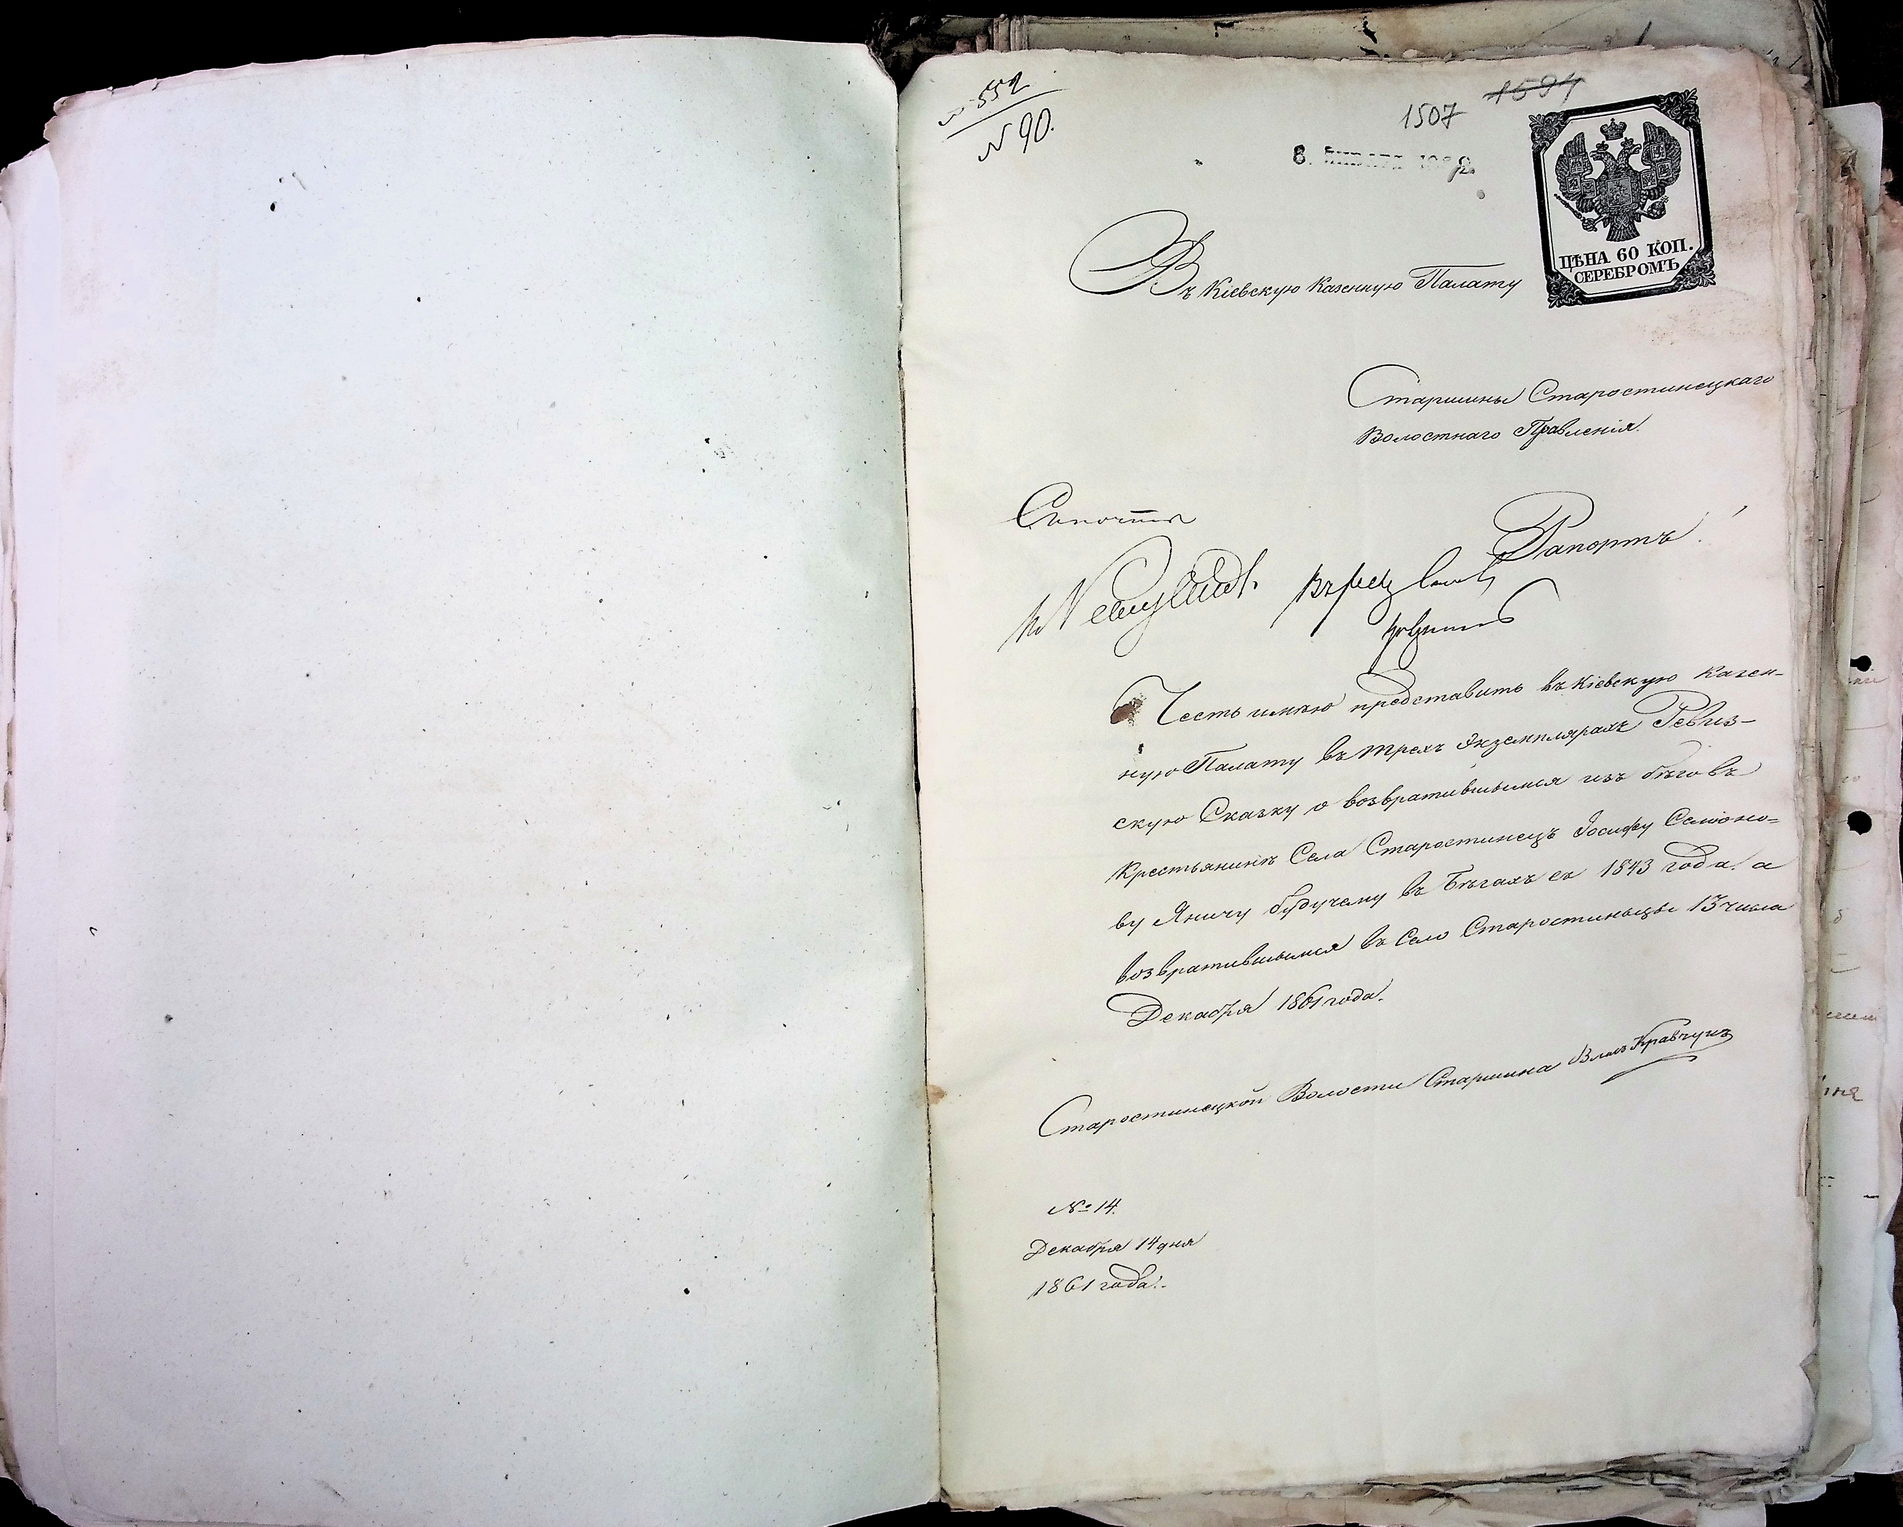 № 552
№ 90.
1594
1507
8. ЯНВАРЯ 1862.
ЦѢНА 60 КОП.
СЕРЕБРОМЪ
Въ Кіевскую Казенную Палату
Старшины Старостинецкаго
Волостнаго Правленія.
Рапортъ!
Честь имѣю представить въ Кіевскую Казен-
ную Палату въ трехъ экземплярахъ Ревиз-
скую Сказку о возвратившымся изъ бѣговъ
Крестьянинѣ Села Старостинецъ Іосифу Семіоно-
ву Яничу будучему въ бѣгахъ съ 1843 года. а
возвратившымся въ Село Старостинецы 13 числа
Декабря 1861 года.
Старостинецкой Волости Старшина Кравчукъ
№ 14.
Декабря 14 дня
1861 года.